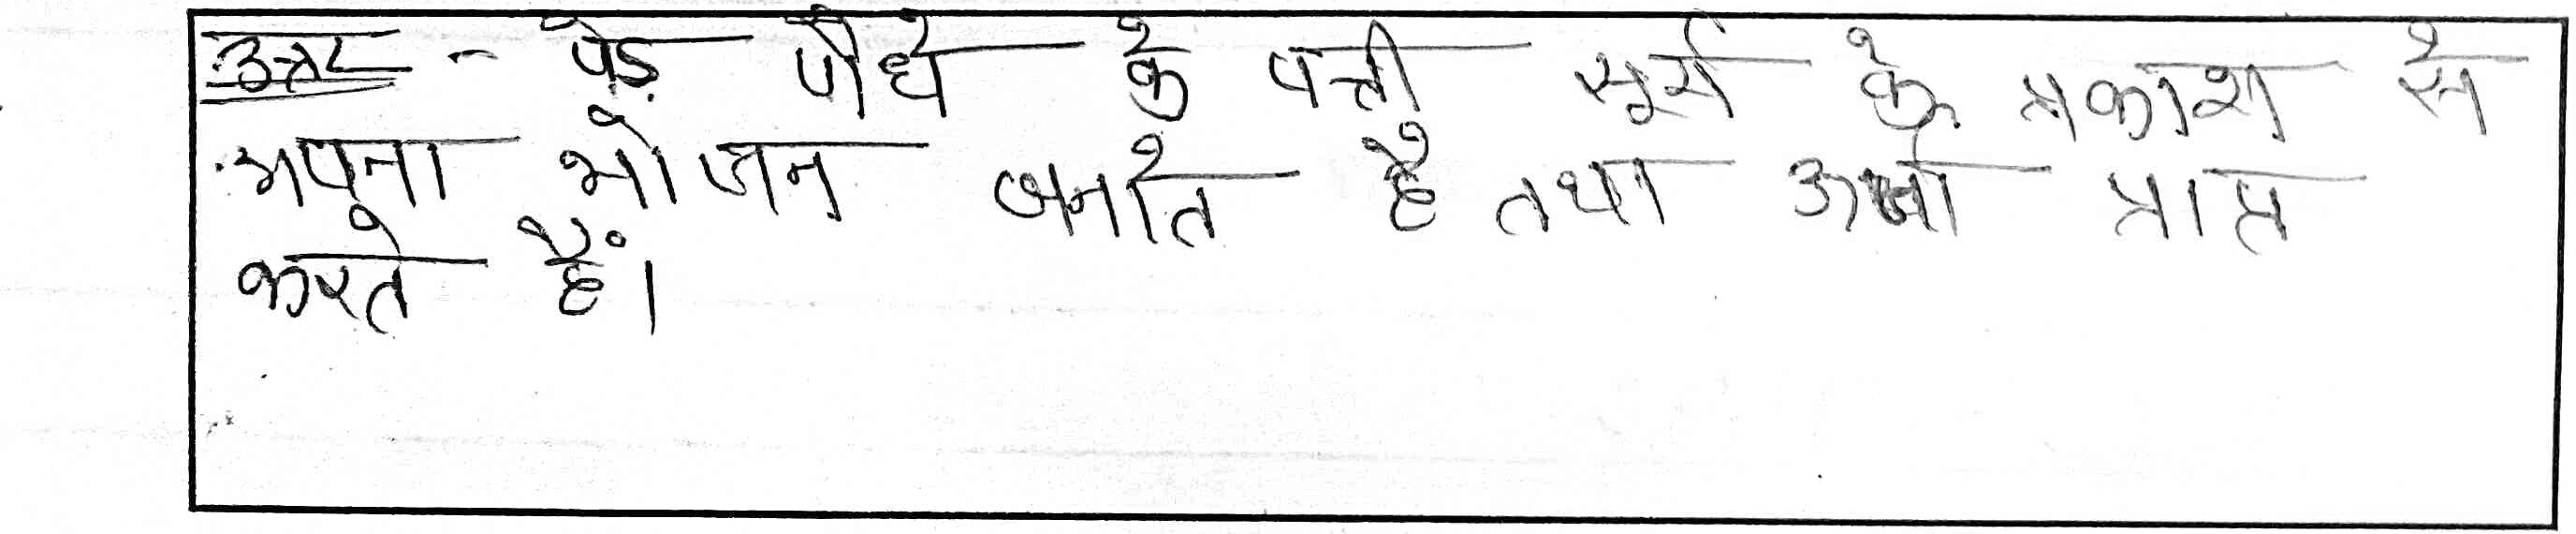 उत्तर - पेड़ पौधे के पत्ती सूर्य के प्रकाश से
अपना भोजन बनाते है तथा ऊर्जा प्राप्त
करते हैं।